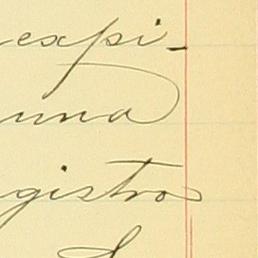 expi-
una
gistros